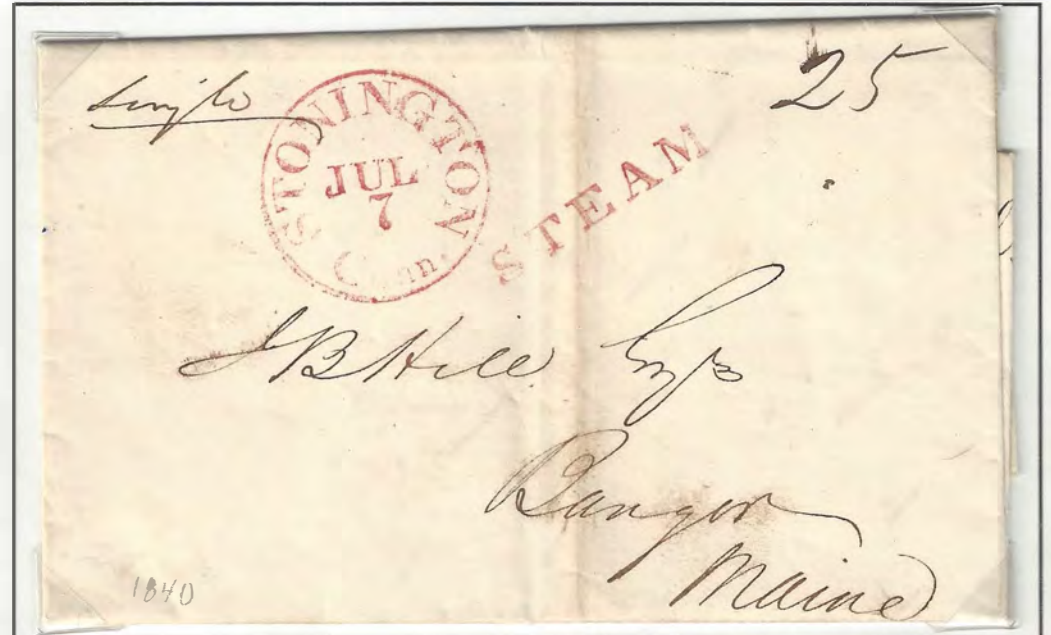 Single
25
STONINGTON
JUL
7
Conn.
STEAM
J B Hill Esqr
Bangor
Maine
1840